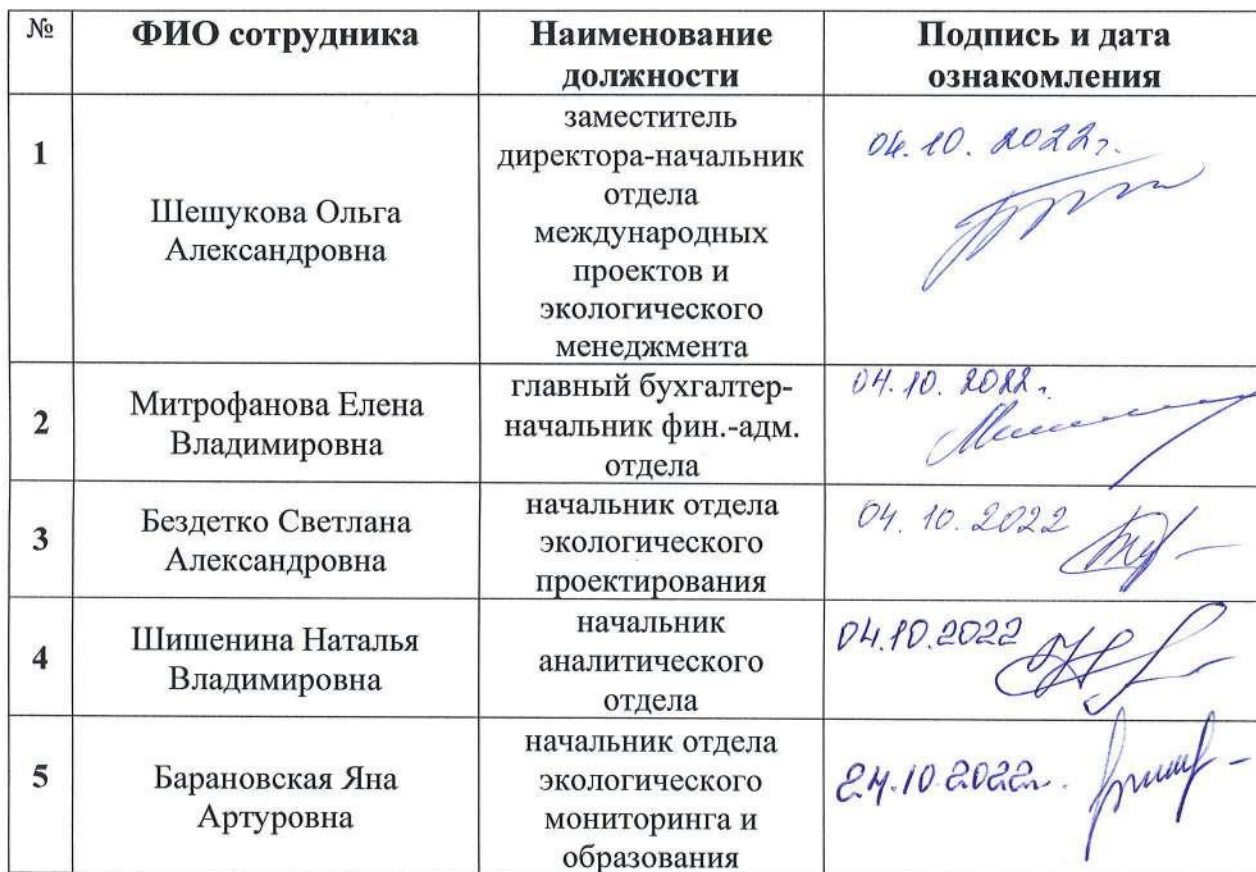 №
ФИО сотрудника
Наименование
должности
Подпись и дата
ознакомления
1
Шешукова Ольга
Александровна
заместитель
директора-начальник
отдела
международных
проектов и
экологического
менеджмента
04.10.2022г.
2
Митрофанова Елена
Владимировна
главный бухгалтер-
начальник фин.-адм.
отдела
04.10.2022г.
3
Бездетко Светлана
Александровна
начальник отдела
экологического
проектирования
04.10.2022
4
Шишенина Наталья
Владимировна
начальник
аналитического
отдела
04.10.2022
5
Барановская Яна
Артуровна
начальник отдела
экологического
мониторинга и
образования
24.10.2022г.